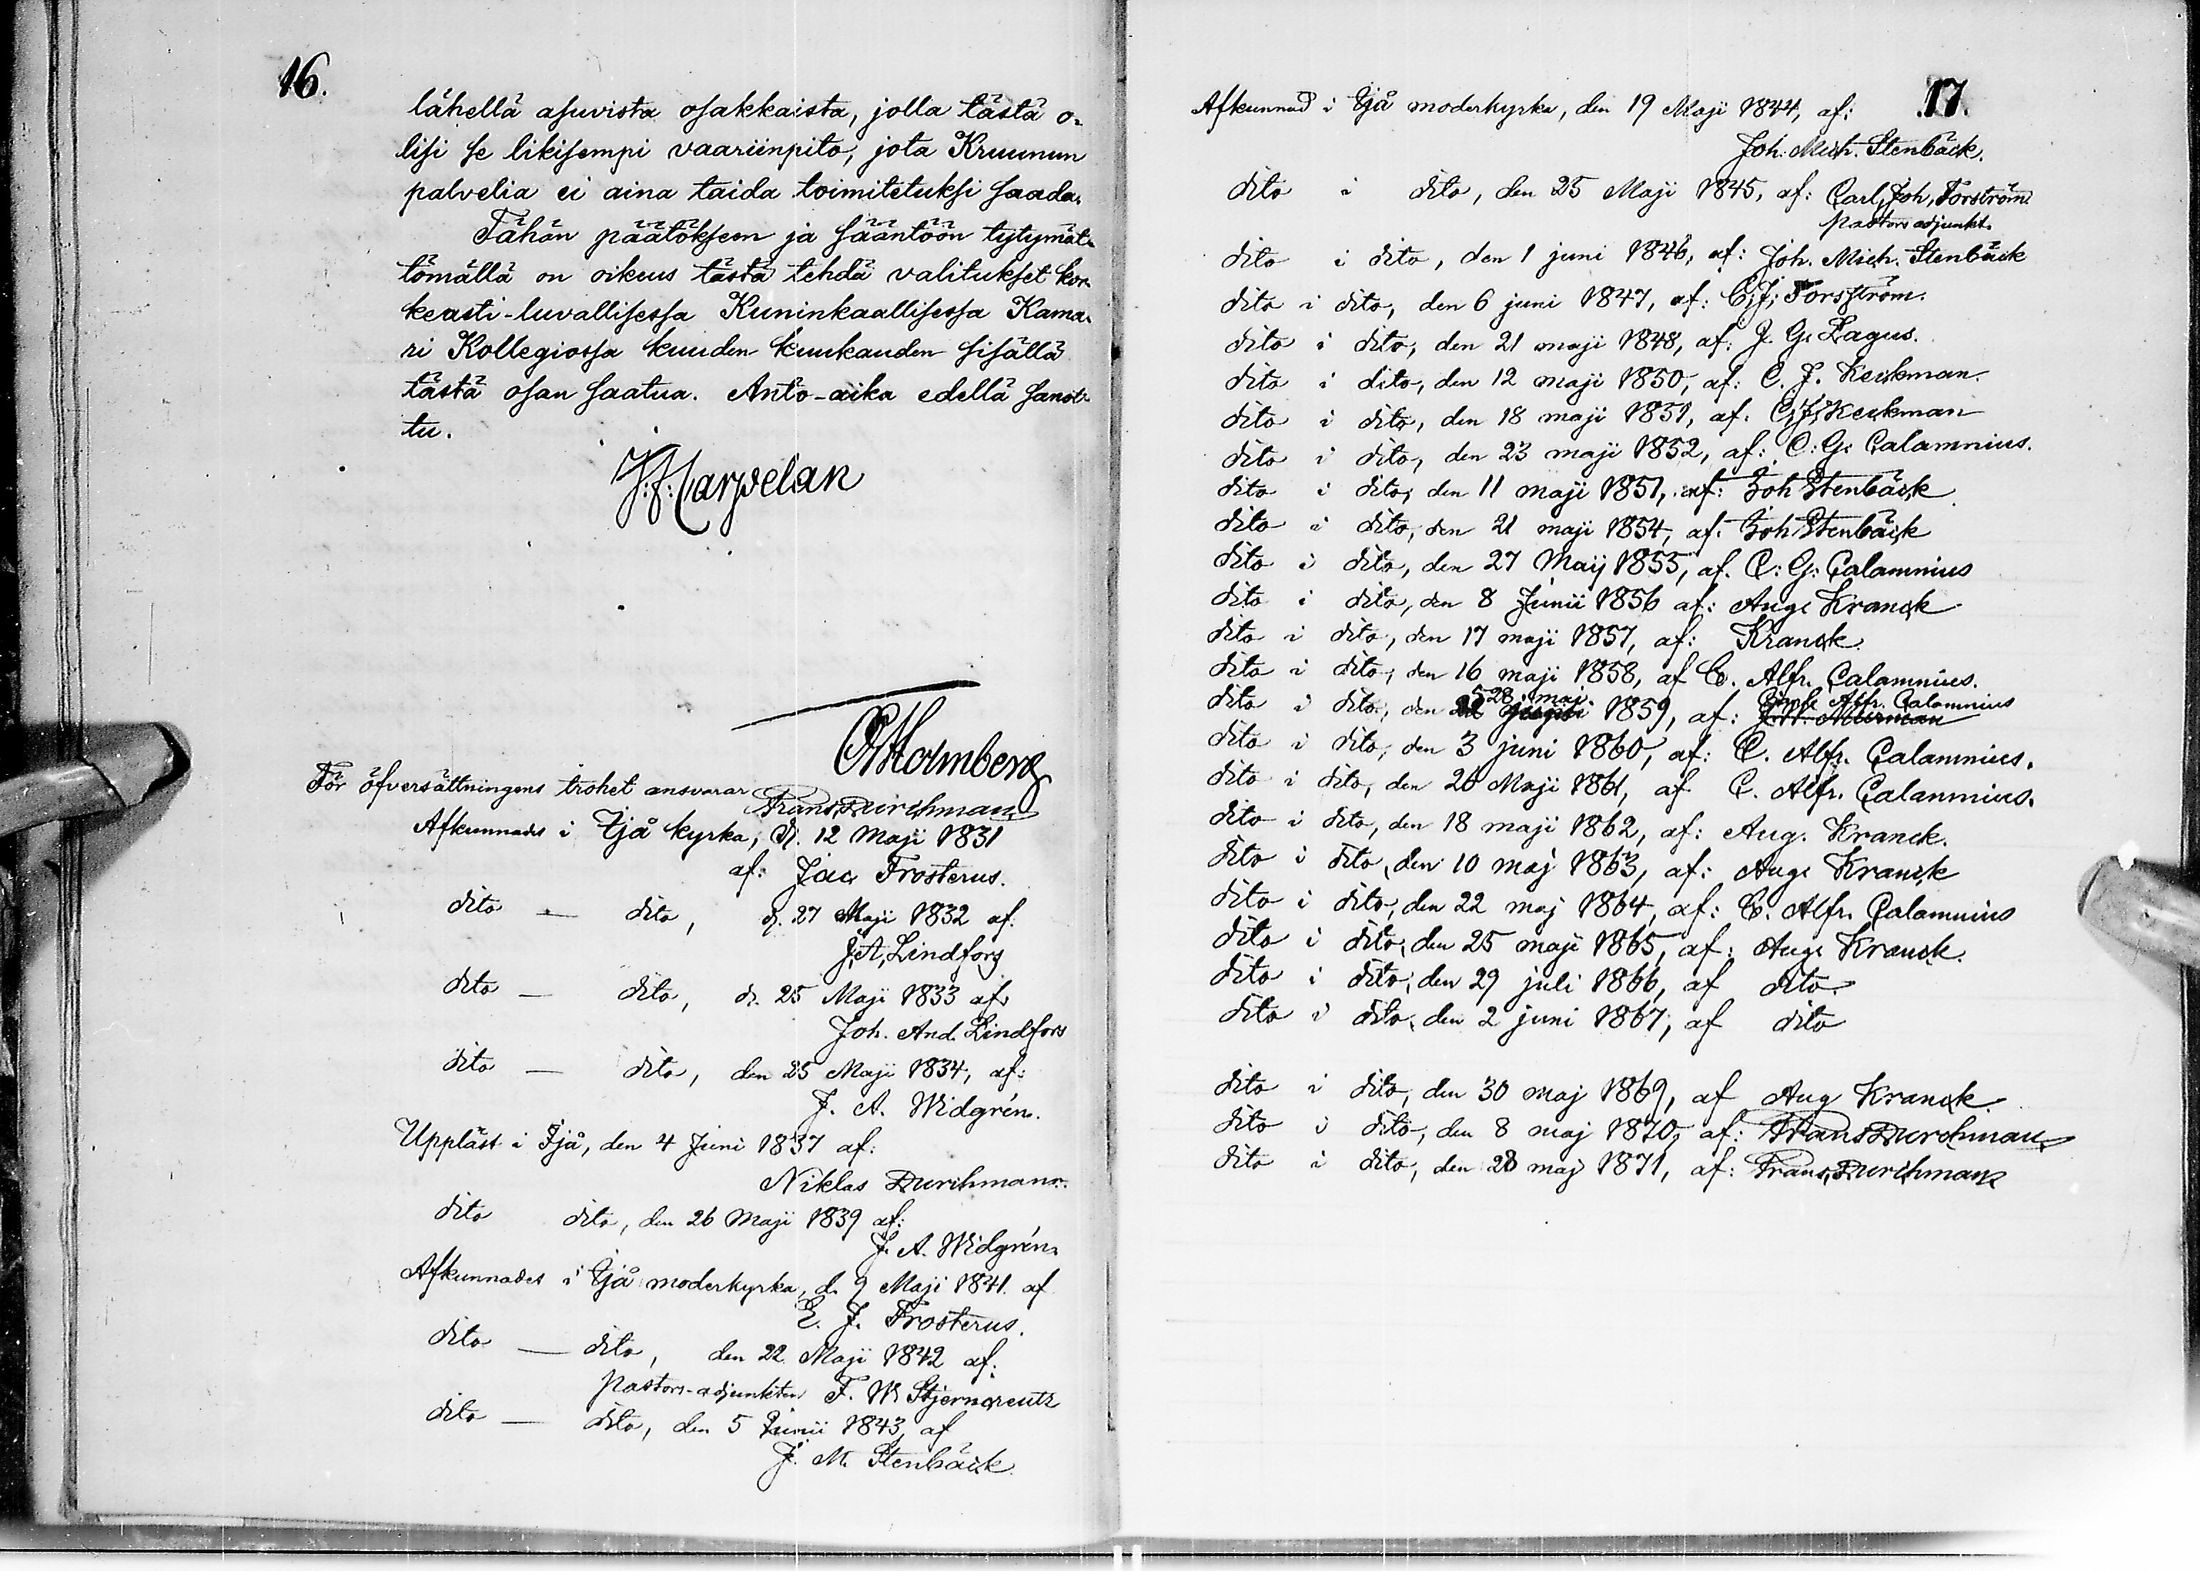 16.
lähellä asuvista osakkaista, jolla tästä o-
lisi se likisempi vaariinpito, jota Kruunun
palvelia ei aina taida toimitetuksi saada.
Tähän päätöksem ja sääntöön tytymät-
tömällä on oikeus tästä tehdä valitukset kor-
keasti-luvallisessa Kuninkaallisessa Kama-
ri Kollegiossa kuuden kuukauden sisällä
tästä osan saatua. Anto-aika edellä sanot-
tu.
J: F: Carpelan
Holmberg
För öfversättningens trohet ansvarar
Frans Durchman
Afkunnads i Ijå kyrka, d. 12 Maji 1831
af: Jac Frosterus.
dito — dito, d. 27 Maji 1832 af:
J, A, Lindfors
dito — dito, d. 25 Maji 1833 af:
Joh. And. Lindfors
dito — dito, den 25 Maji 1834, af:
J. A. Widgrén.
Uppläst i Ijå, den 4 Juni 1837 af:
Niklas Durchman.
dito dito, den 26 Maji 1839 af:
J. A. Widgrén.
Afkunnades i Ijå moderkyrka, d. 9 Maji 1841. af
E. J. Frosterus.
dito — dito, den 22 Maji 1842 af:
pastors-adjunkten F. W. Stjerncreutz
dito — dito, den 5 Junii 1843, af
J. M. Stenbäck.
17.
Afkunnad i Ijå moderkyrka, den 19 Maji 1844, af:
Joh. Mich. Stenbäck.
dito i dito, den 25 Maji 1845, af: Carl, Joh, Forström
pastors adjunkt.
dito i dito, den 1 juni 1846, af: Joh. Mich. Stenbäck
dito i dito, den 6 juni 1847, af: C; J; Forsström.
dito i dito, den 21 maji 1848, af: J. G. Lagus.
dito i dito, den 12 maji 1850, af: C. J. Keckman.
dito i dito, den 18 maji 1851, af: C, J, Keckman
dito i dito, den 23 maji 1852, af: C: G: Calamnius.
dito i dito, den 11 maji 1851, af: Joh Stenbäck
dito i dito, den 21 maji 1854, af: Joh Stenbäck
dito i dito, den 27 Maij 1855, af. C: G: Calamnius
dito i dito, den 8 Junii 1856 af: Aug. Kranck
dito i dito, den 17 maji 1857, af: Kranck
dito i dito, den 16 maji 1858, af C. Alfr. Calamnius.
dito i dito, den 28. maj 1859, af: Alfr. Calamnius
dito i dito, den 3 juni 1860, af: C. Alfr. Calamnius.
dito i dito, den 26 Maji 1861, af C. Alfr. Calamnius.
dito i dito, den 18 maji 1862, af: Aug. Kranck.
dito i dito, den 10 maj 1863, af: Aug. Kranck
dito i dito, den 22 maj 1864, af: C. Alfr. Calamnius
dito i dito, den 25 maji 1865, af: Aug. Kranck.
dito i dito, den 29 juli 1866, af dito
dito i dito, den 2 juni 1867, af dito
dito i dito, den 30 maj 1869, af Aug Kranck.
dito i dito, den 8 maj 1870, af: Frans Durchman
dito i dito, den 28 maj 1871, af: Frans, Durchman